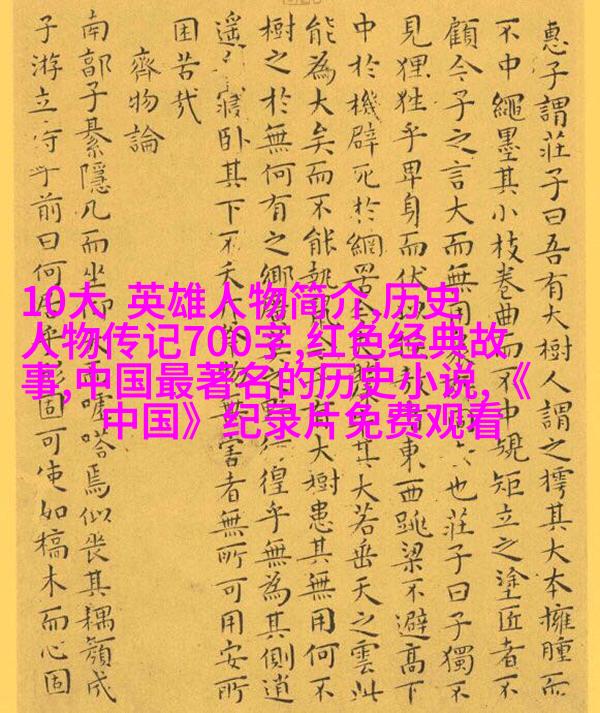 惠子謂莊子曰吾有大樹人謂之樗其大本擁腫而
不中繩墨其小枝卷曲而不中規矩立之塗匠者不
顧今子之言大而無用也莊子曰子獨不
見狸狌乎卑身而伏東西跳梁不避高下
中於機辟死於網罟其大若垂天之雲此
能為大矣而不能執鼠大樹患其無用何不
樹之於無何有之鄉徨乎無為其側逍
遙寢卧其下不夭害者無所可用安所
困苦哉
齊物論
南郭子綦隱几而坐噓嗒焉似喪其耦顏成
子游立侍乎前曰何形固可使如槁木而心固
10大 英雄人物简介,历史
人物传记700字,红色经典故
事,中国最著名的历史小说,《
中国》纪录片免费观看